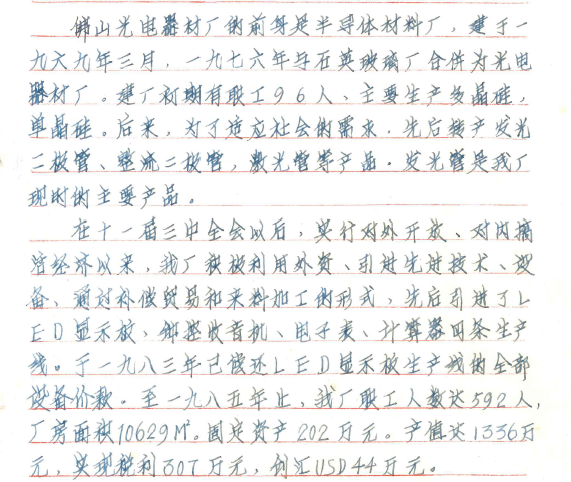 佛山光电器材厂的前身是半导体材料厂，建于一
九六九年三月，一九七六年与石英玻璃厂合并为光电
器材厂。建厂初期有职工96人、主要生产多晶硅，
单晶硅。后来，为了适应社会的需求，先后转产发光
二极管、整流二极管，激光管等产品。发光管是我厂
现时的主要产品。
在十一届三中全会以后，实行对外开放、对内搞
活经济以来，我厂积极利用外资、引进先进技术、设
备、通过补偿贸易和来料加工的形式，先后引进了L
ED显示板、钟控收音机、电子表、计算器四条生产
线。于一九八三年已偿还LED显示板生产线的全部
设备价款。至一九八五年止，我厂职工人数达592人，
厂房面积10629M²。固定资产202万元。产值达1336万
元，实现税利307万元，创汇USD44万元。